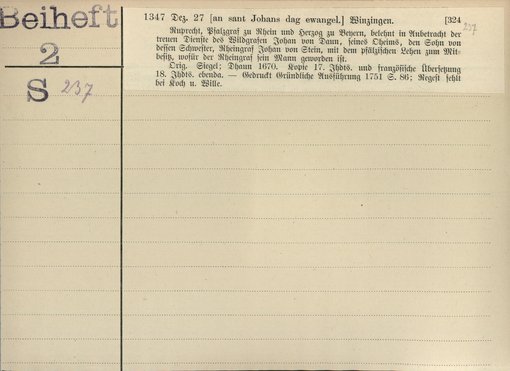 Beiheft
2
S 237
1347 Dez. 27 [an sant Johans dag ewangel.] Winzingen. [324
237
Ruprecht, Pfalzgraf zu Rhein und Herzog zu Beyern, belehnt in Anbetracht der
treuen Dienste des Wildgrafen Johan von Daun, seines Oheims, den Sohn von
dessen Schwester, Rheingraf Johan von Stein, mit dem pfälzischen Lehen zum Mit-
besitz, wofür der Rheingraf sein Mann geworden ist.
Orig. Siegel; Dhaun 1670. Kopie 17. Jhdts. und französische Übersetzung
18. Jhdts. ebenda. — Gedruckt Gründliche Ausführung 1751 S. 86; Regest fehlt
bei Koch u. Wille.